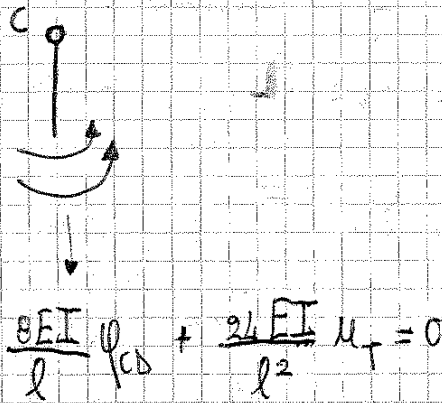 C
8EI/l φ_CD + 24EI/l² u_T = 0